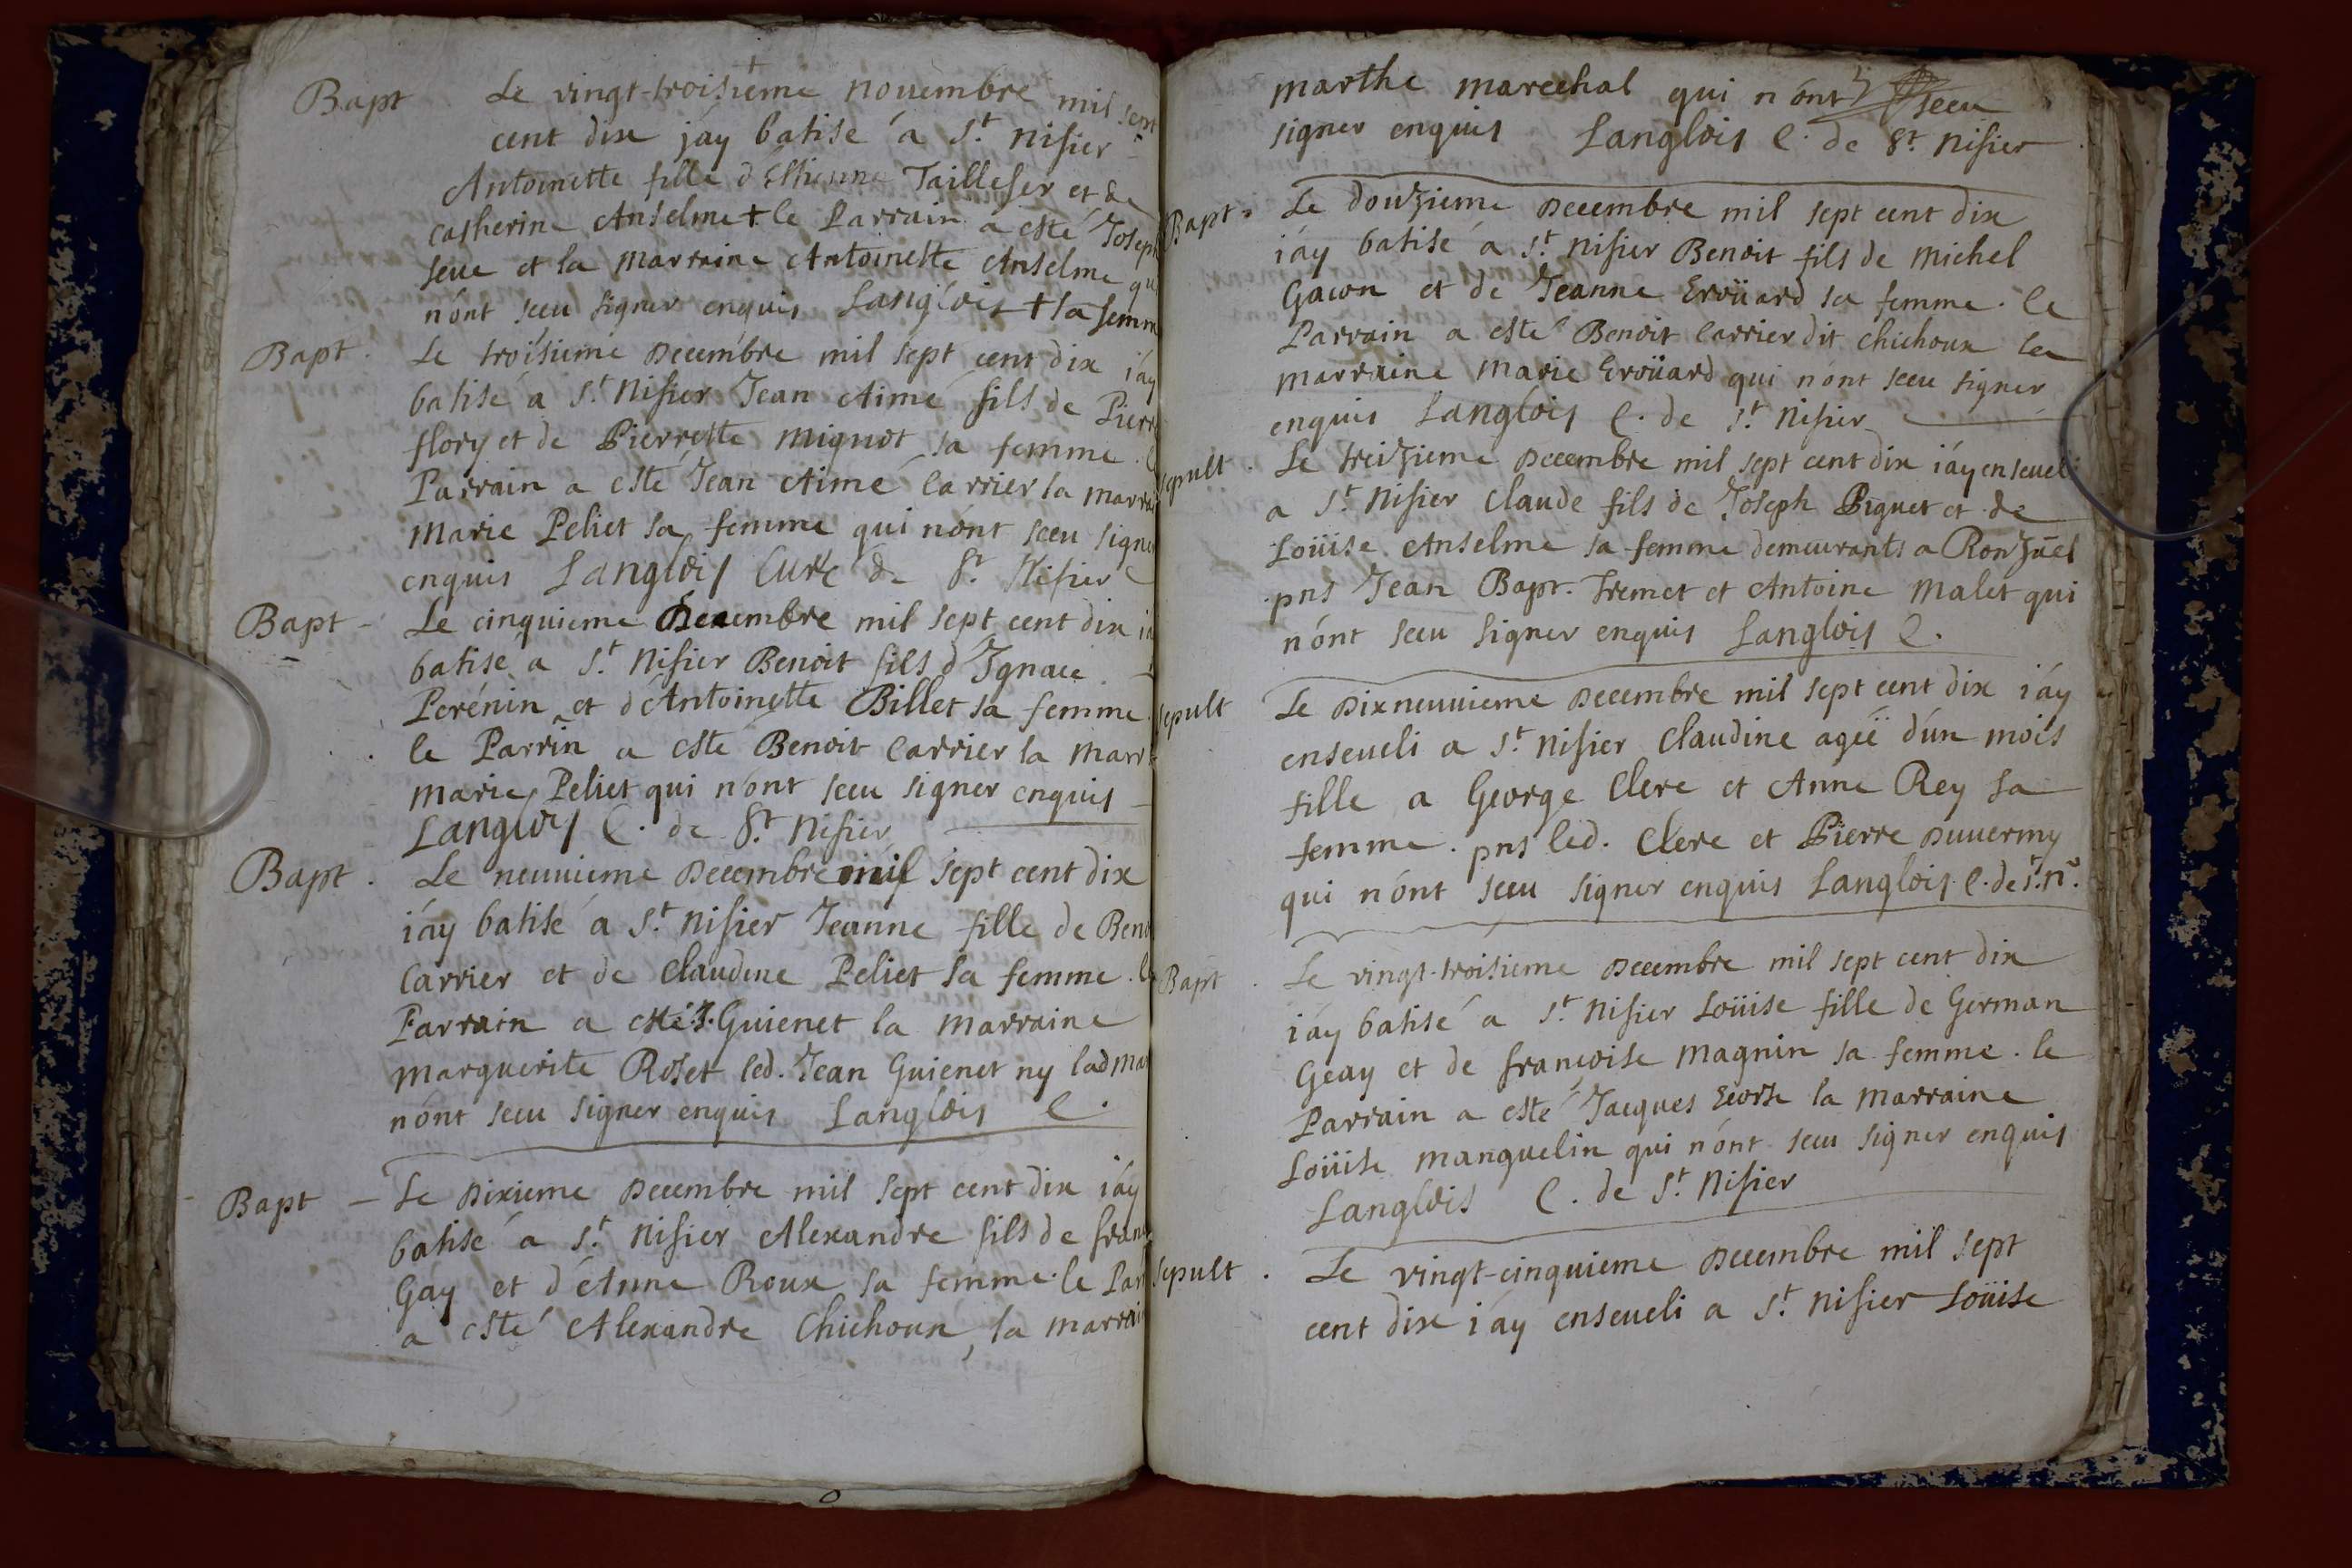 Bapt Le vingt-troisieme nouembre mil sept
cent dix j'ay batisé a St. nisier
Antoinette fille d'Estienne Taillefer et de
catherine Anselme + le Parrain a esté Joseph
seue et la marraine Antoinette Anselme qu
n'ont sceu signer enquis Langlois + sa femm
Bapt. Le troisieme Decembre mil sept cent dix i'ay
batisé a St. Nisier Jean Aimé fils de Pierr
flory et de Pierrette mignot sa femme. l
Parrain a esté Jean Aimé Carrier la marra
marie Peliet sa femme qui n'ont sceu signer
enquis Langlois Curé de St. Nisier
Bapt - Le cinquieme Decembre mil sept cent dix i'a
batisé a St. Nisier Benoit fils d'Ignace
Perénin et d'Antoinette Billet sa femme.
le Parrin a esté Benoit Carrier la Marr
marie Peliet qui n'ont sceu signer enquis
Langlois C. de St. Nisier
Bapt. Le neuuieme Decembre mil sept cent dix
i'ay batisé a St. Nisier Jeanne fille de Beno
Carrier et de Claudine Peliet sa femme. le
Parrain a esté J. Guienet la marraine
marguerite Roset led. Jean Guienet ny lad Mar
n'ont sceu signer enquis Langlois C.
Bapt - Le Dixieme Decembre mil sept cent dix i'ay
batisé a St. Nisier Alexandre fils de fran
Gay et d'Anne Roux sa femme. le Par
a esté Alexandre Chichoux, la marrai
marthe marechal qui n'ont sceu
signer enquis Langlois C. de St. Nisier
Bapt. Le douzieme Decembre mil sept cent dix
i'ay batisé a St. Nisier Benoit fils de michel
Gacon et de Jeanne Eroüard sa femme. le
Parrain a esté Benoit Carrier dit chichoux la
marraine Marie Eroüard qui n'ont sceu signer
enquis Langlois C. de St. Nisier
sepult. Le treizieme Decembre mil sept cent dix i'ay enseueli
a St. Nisier Claude fils de Joseph Piguet et de
Loüise Anselme sa femme demeurants a Ronzuel
pns Jean Bapt. Tremet et Antoine Malet qui
n'ont sceu signer enquis Langlois C.
sepult Le Dixneuuieme Decembre mil sept cent dix i'ay
enseueli a St. Nisier Claudine agéé d'un mois
fille a George Clerc et Anne Rey sa
femme. pns led. Clerc et Pierre Duuermy
qui n'ont sceu signer enquis Langlois C. de St. nr.
Bapt. Le vingt-troisieme Decembre mil sept cent dix
i'ay batisé a St. Nisier Loüise fille de German
Geay et de françoise Magnin sa femme. le
Parrain a esté Jacques Ecorse la marraine
Loüise manquelin qui n'ont sceu signer enquis
Langlois C. de St. Nisier
sepult. Le vingt-cinquieme Decembre mil sept
cent dix i'ay enseueli a St. Nisier Loüise